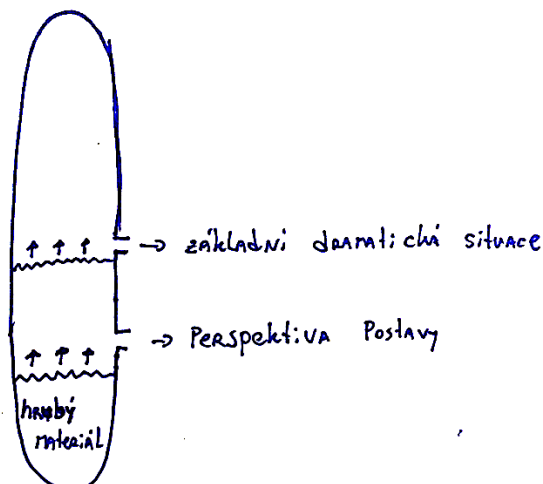 → základní dramatická situace
→ Perspektiva Postavy
hrubý
materiál